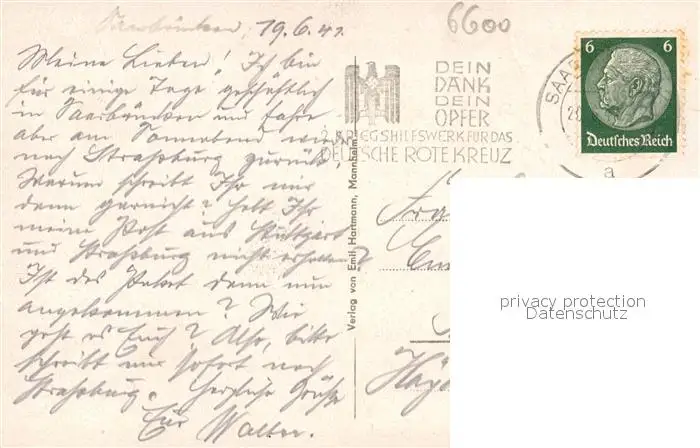 Saarbrücken, 19.6.41.
Meine Lieben! Ich bin
für einige Tage geschäftlich
in Saarbrücken und fahre
aber am Sonnabend wieder
nach Straßburg zurück.
Warum schreibt Ihr mir
denn garnicht? Habt Ihr
meine Post aus Stuttgart
und Straßburg nicht erhalten?
Ist das Paket denn nun
angekommen? Wie
geht es Euch? Also, bitte
schreibt mir sofort nach
Straßburg. Herzliche Grüße
Euer Walter.
6600
DEIN
DANK
DEIN
OPFER
2. KRIEGSHILFSWERK FÜR DAS
DEUTSCHE ROTE KREUZ
SAAR
6 6
Deutsches Reich
a
Verlag von Emil Hartmann, Mannheim
privacy protection
Datenschutz